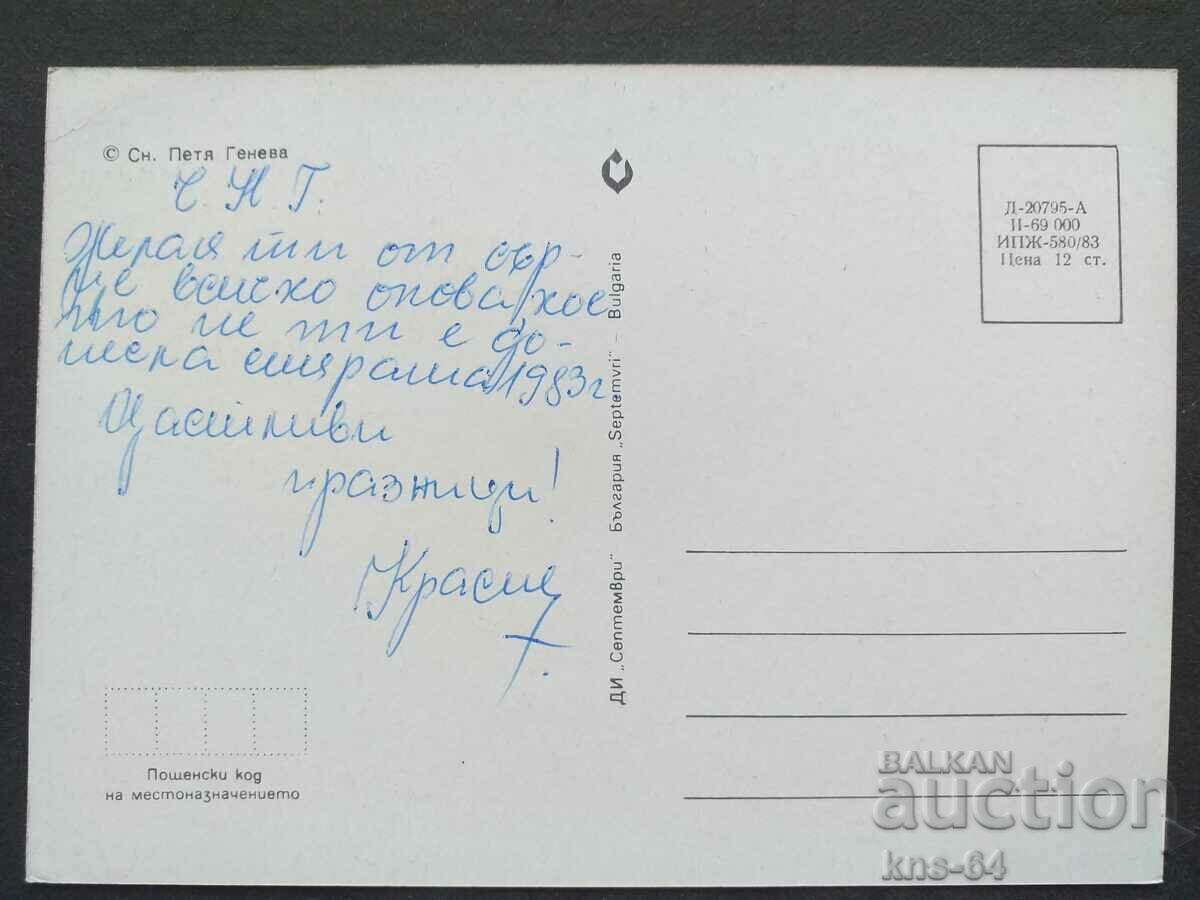 © Сн. Петя Генева
Ч. Н. Г.
Желая ти от сър-
це всичко онова, кое
то не ти е до-
несла старата 1983 г
Щастливи
празници!
Краси
Пощенски код
на местоназначението
ДИ „Септември" България „Septemvri" – Bulgaria
Д-20795-А
II-69 000
ИПЖ-580/83
Цена 12 ст.
BALKAN
auction
kns-64